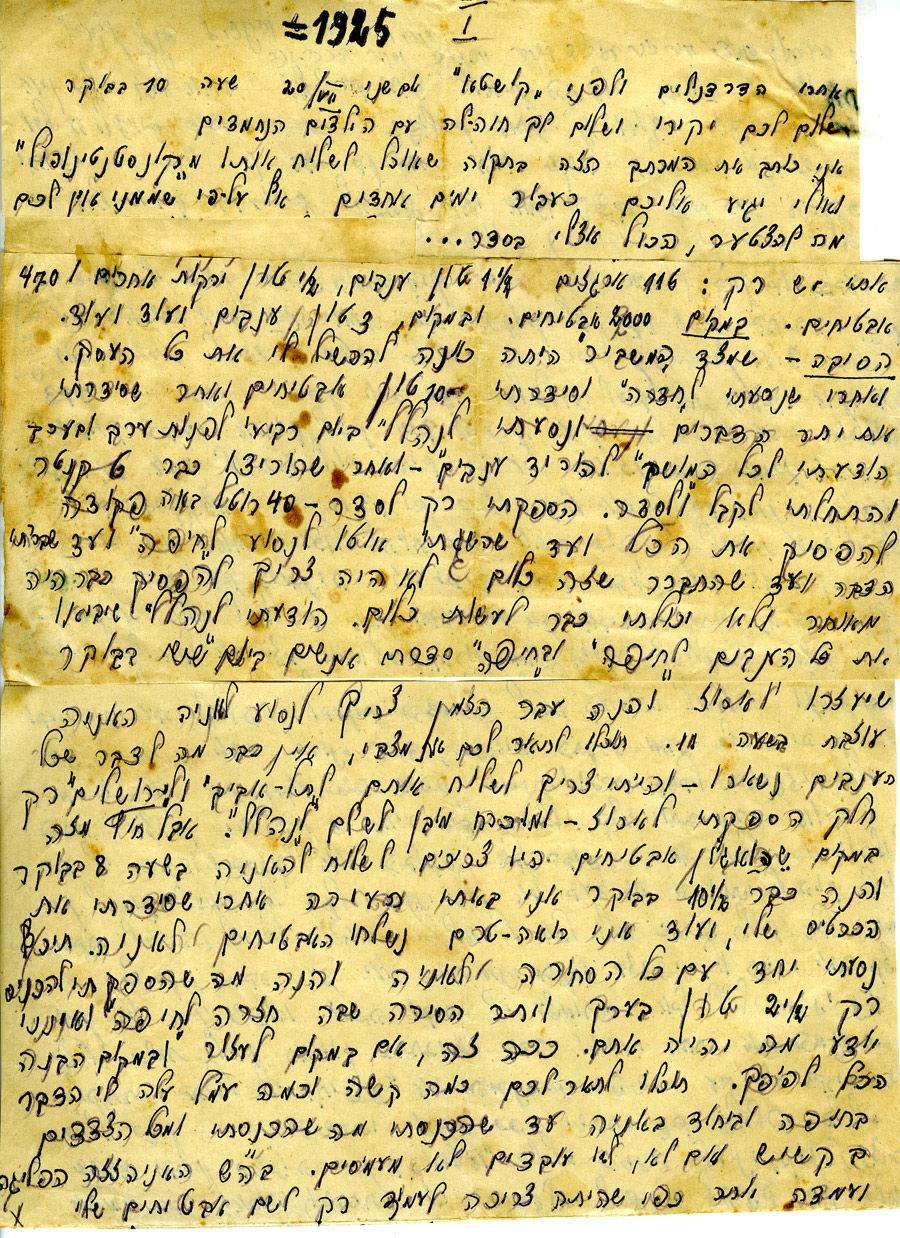 ±1925 I
אחרי הדרדנלים ולפני "קושטא" יום שני 20/VII שעה 10 בבוקר
שלום לכם יקירי ושלום לך חוה'לה עם הילדים הנחמדים
אני כותב את המכתב הזה בתקוה שאוכל לשלוח אותו מ"קונסטנטינופול"
ואולי יגיע אליכם כעבור ימים אחדים אך על-פי שממני אין לכם
מה להצטער, הכול אצלי בסדר...
אתי יש רק: 116 ארגזים 1½ טון ענבים, ½ טון ירקות אחרים ו 470
אבטיחים. במקום 2000 אבטיחים. ובמקום 3 טון ענבים ועוד ועוד.
הסיבה – שמצד "המשביר" היתה כונה להכשיל לי את כל העסק.
ואחרי שנסעתי ל"חדרה" וסידרתי 10 טון אבטיחים ואחר שסידרתי
את יתר הדברים נסעתי ל"נהלל" ביום רביעי לפנות ערב ובערב
הודעתי לכל המושב "להוריד ענבים" – ואחר שהורידו כבר 6 קנטר
והתחלתי לקבל ולסדר. הספקתי רק לסדר – 40 רוטל באה פקודה
להפסיק את הכל ועד שהשגתי אוטו לנסוע ל"חיפה" ועד שבררתי
הדבר ועד שהתברר שזה כלום לא היה צריך להפסיק כבר היה
מאוחר ולא יכולתי כבר לעשות כלום. הודעתי ל"נהלל" שיביאו
את כל הענבים ל"חיפה" וב"חיפה" סדרתי אנשים ביום ששי בבוקר
שיעזרו לארוז והנה עבר הזמן צריך לנסוע לאניה האניה
עוזבת בשעה 11. תוכלו לתאר לכם את מצבי, אין כבר מה לדבר שכל
הענבים נשארו – והייתי צריך לשלוח אותם ל"תל-אביב" ול"ירושלים" רק
חלק הספקתי לארוז – ומוכרח מובן לשלם ל"נהלל". אבל חוץ מזה
במקום שהואגון אבטיחים היו צריכים לשלוח להאניה בשעה 8 בבוקר
והנה כבר 10½ בבוקר אני באתי העירה אחרי שסידרתי את
הכרטיס שלי, ועוד אני רואה - טרם נשלחו האבטיחים לאניה. תיכף
נסעתי יחד עם כל הסחורה לאניה והנה מה שהספקתי להכניס
רק 2½ טון בערך ויתר הסירה שבה חזרה ל"חיפה" ואינני
יודע מה יהיה אתם. ככה זה, אם במקום לעזור ובמקום הבנה
הכל להיפך. תוכלו לתאר לכם כמה קשה וכמה עמל עלה לי הדבר
בחיפה וביחוד באניה עד שהכנסתי מה שהכנסתי ומכל הצדדים
בקשיש אם לא, לא עובדים לא מעמיסים. האניה הזה הפליגה
ועמדה אחר כפי שהיתה צריכה לעמוד רק לשם אבטיחים שלי